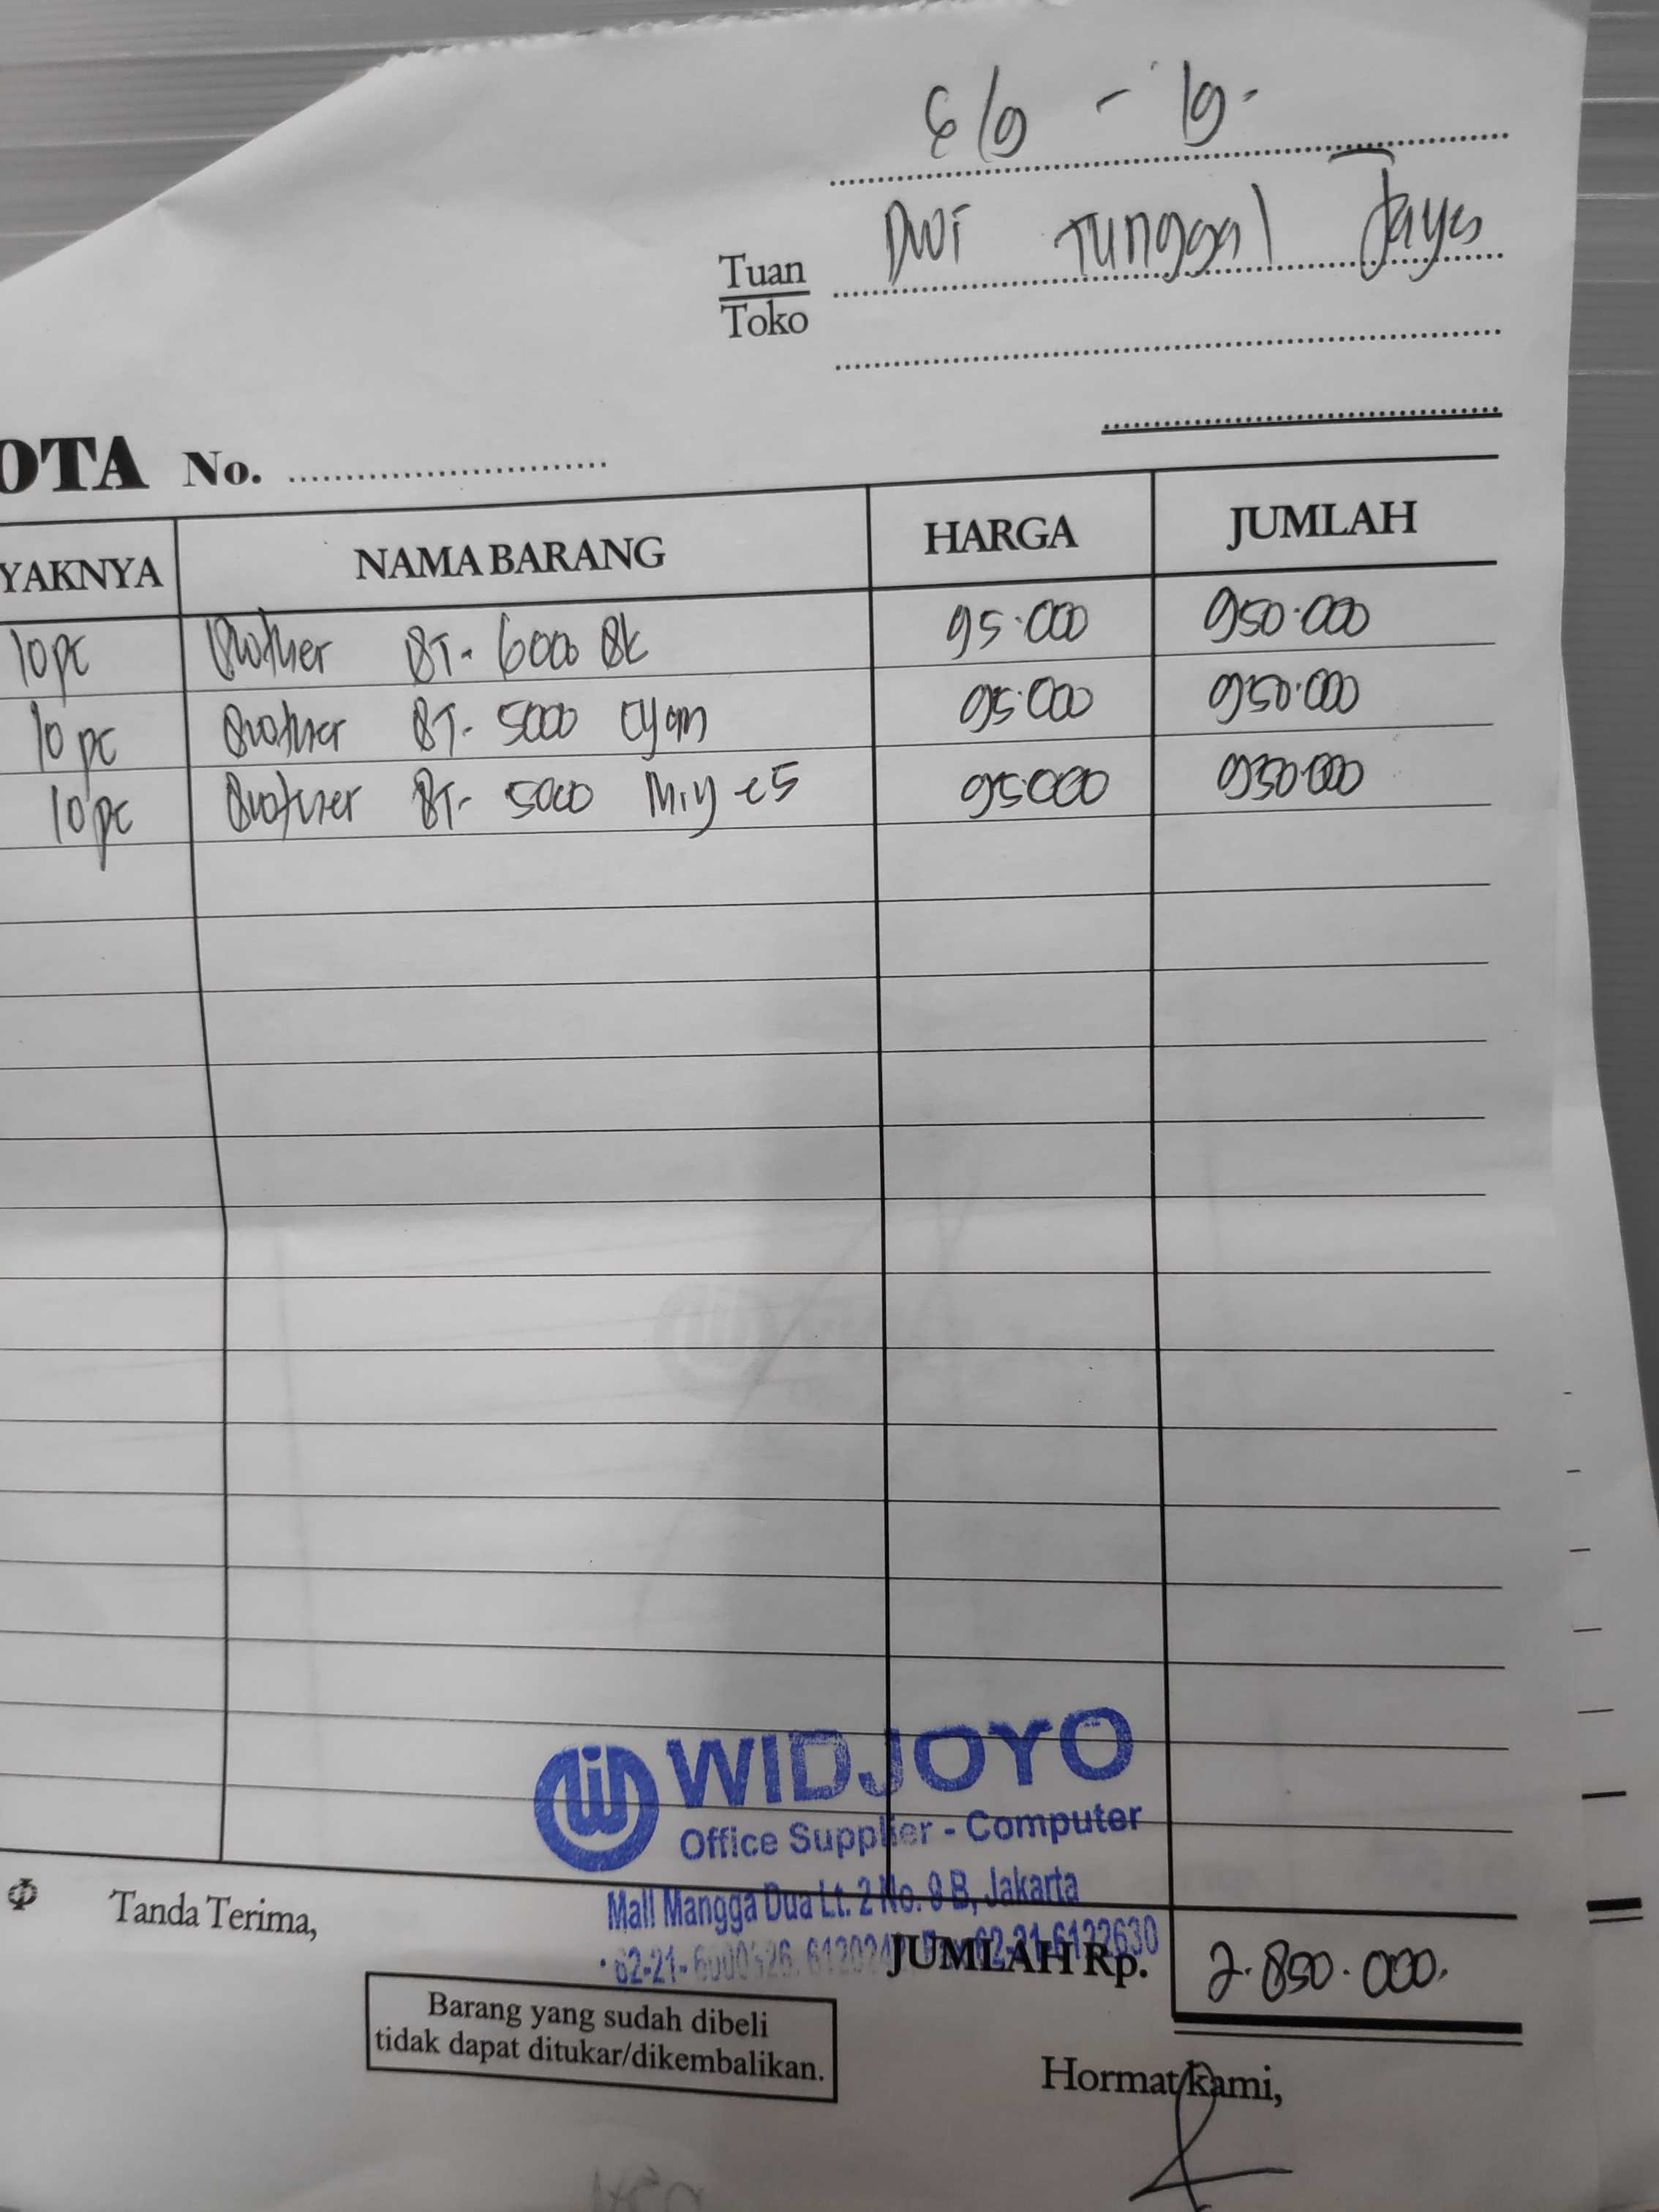 6/9 - 19.
Tuan
Toko
Dwi Tunggal Jaya
OTA No.
YAKNYA NAMA BARANG HARGA JUMLAH
10 pc Brother BT- 6000 Bk 95.000 950.000
10 pc Brother BT- 5000 Cyan 95.000 950.000
10 pc Brother BT- 5000 95000 950.000
WIDJOYO
Office Supplier - Computer
Mall Mangga Dua Lt. 2 No. 9 B, Jakarta
62-21-6122630
Tanda Terima,
JUMLAH Rp. 2.850.000.
Barang yang sudah dibeli
tidak dapat ditukar/dikembalikan.
Hormat kami,